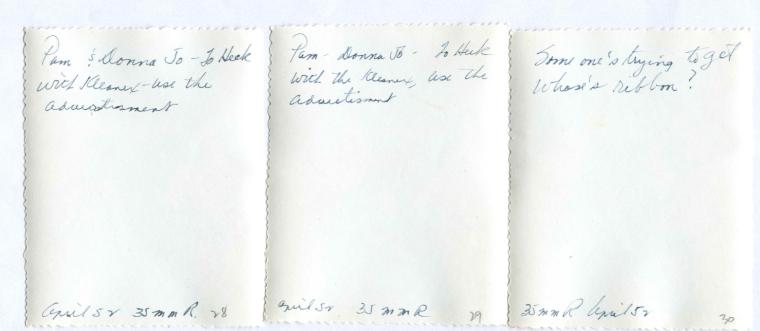 Pam & Donna Jo - To Heck
with Kleenex - use the
advertisment
April 52 35mm R. 28
Pam - Donna Jo - To Heck
with the Kleenex, use the
advertisment
April 52 35mm R 29
Some one's trying to get
Whose's ribbon?
35mm R April 52 30